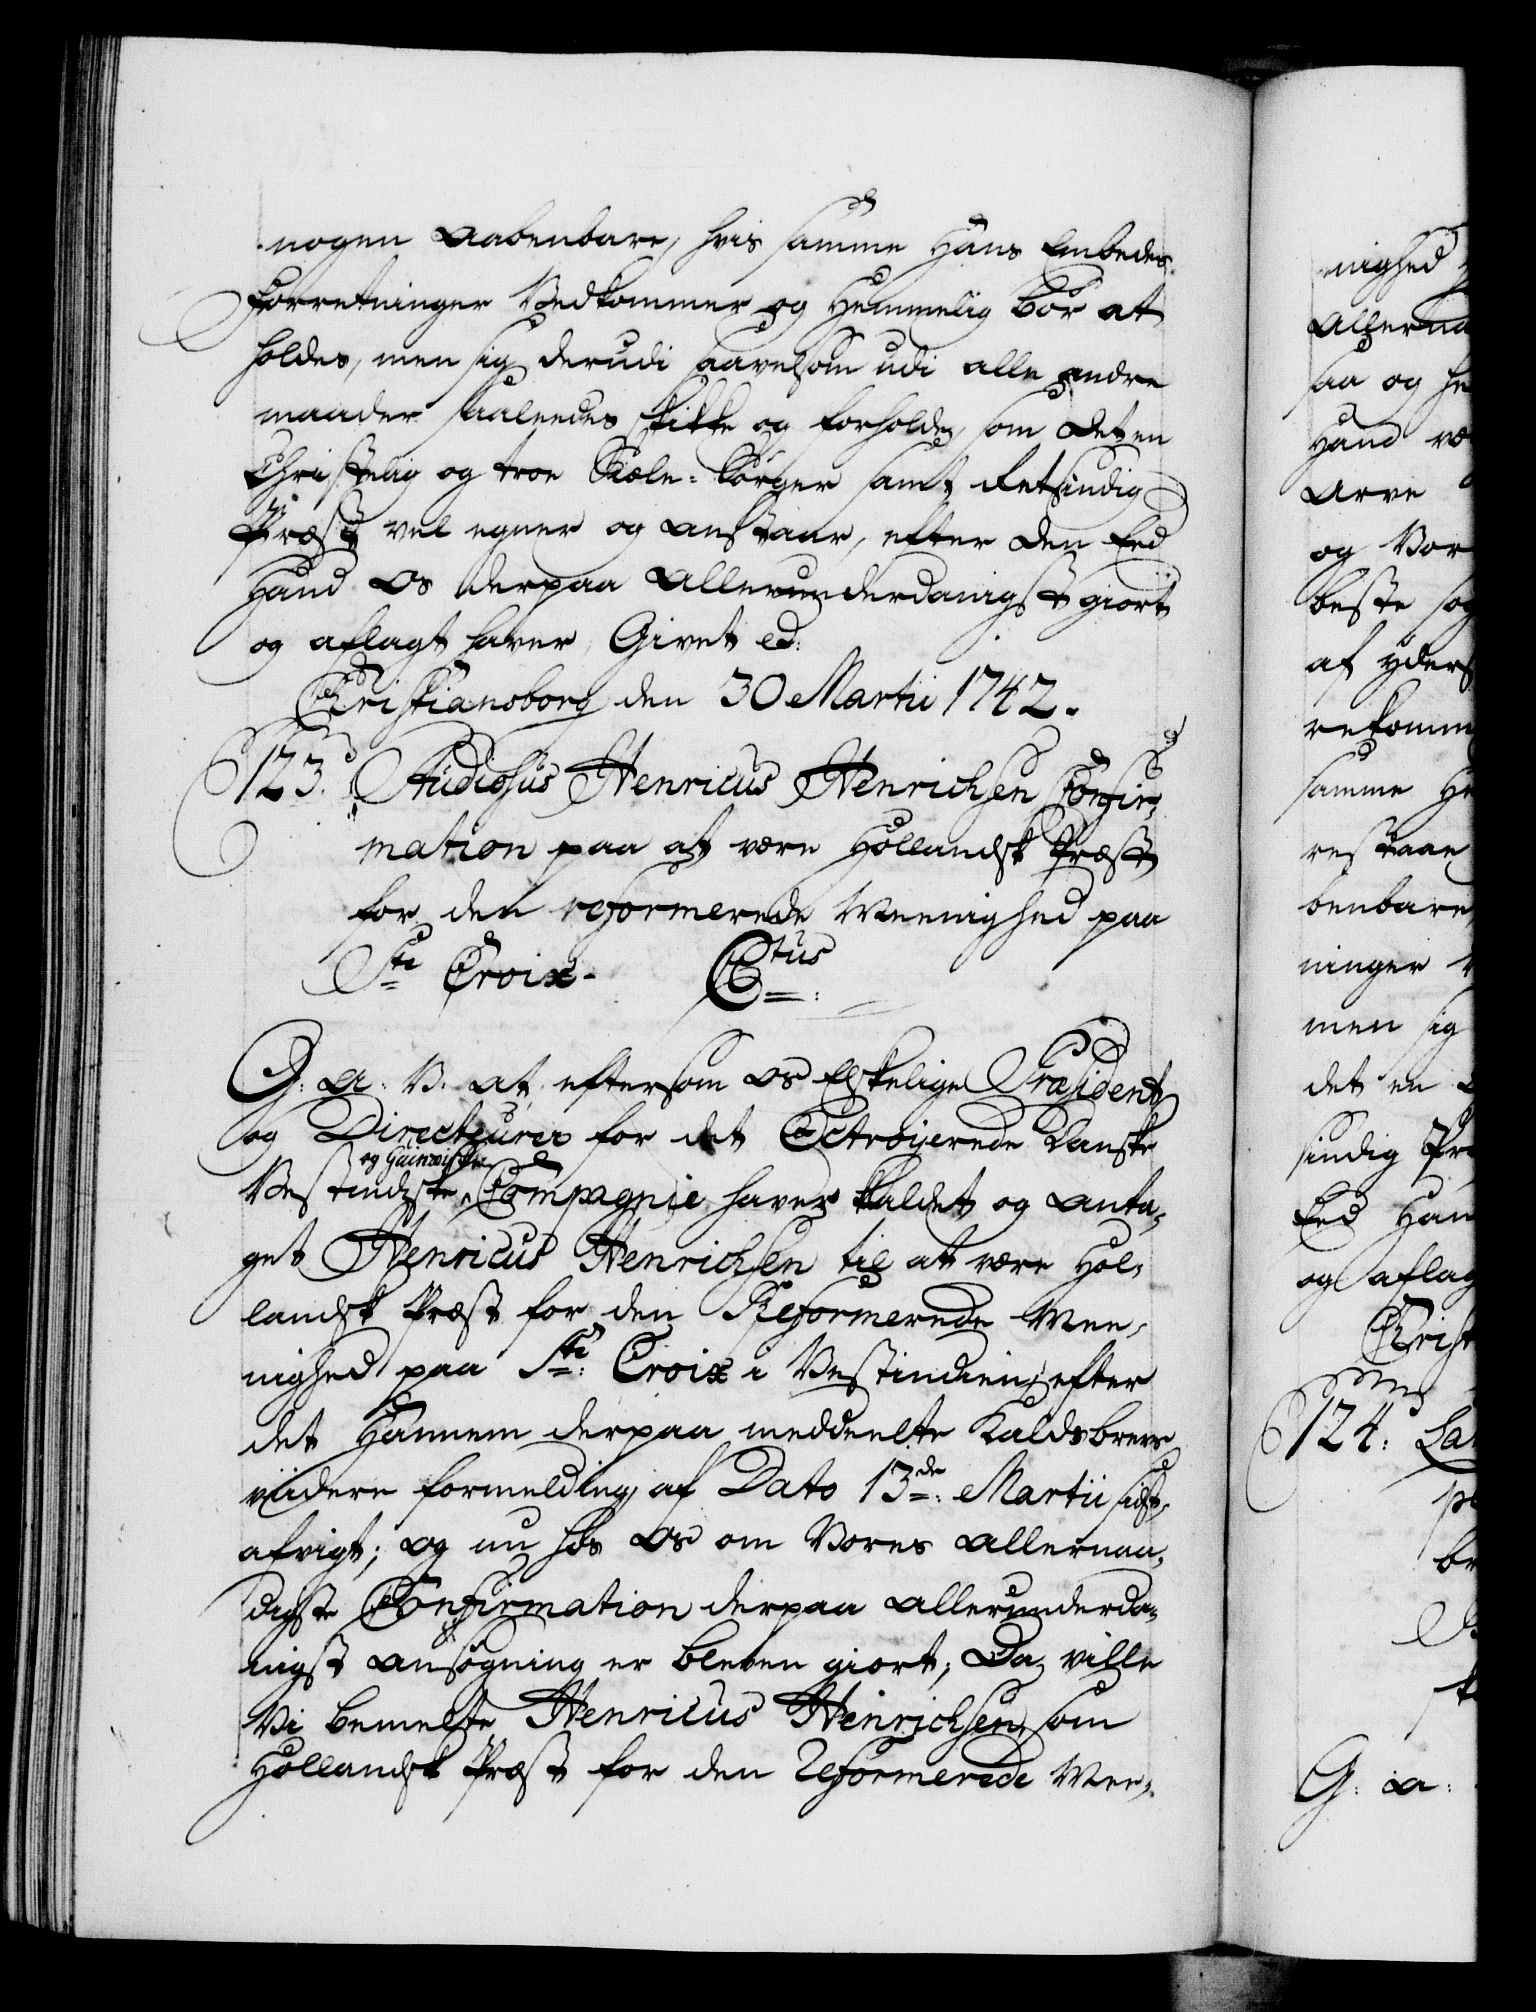 nogen Aabenbare, hvis samme Hans Embedes
Forretninger Vedkommer og Hemmelig bør at
holdes, men sig derudi saavelsom udi alle andre
maader saaleedes skikke og forholde, som det en
Christelig og troe Siæle-Sørger samt retsindig
Præst vel egner og anstaar, efter den Eed
Hand Os derpaa allerunderdanigst giort
og aflagt haver, Givet ed:
Christiansborg den 30 Martii 1742.
123. Studiosus Henricus Henrichsen Confir-
mation paa at være Hollandsk Præst
for den reformerede Meenighed paa
Stæ Croix- Ctus
G: A: V. at eftersom os Elskelige Præsident
og Directeurer for det Octrojerede Danske
og Guineiske
Vestindiske Compagnie haver kaldet og anta-
get Henricus Henrichsen til at være Hol-
landsk Præst for den Reformerede Mee-
nighed paa Stæ: Croix i Vestindien, efter
det Hannem derpaa meddeelte Kaldsbrevs
viidere formelding af Dato 13de: Martii sidst-
afvigt; og nu hos Os om Vores allernaa-
digste Confirmation derpaa allerunderda-
nigst ansøgning er bleven giort; Da ville
Vi bemelte Henricus Henrichsen, som
Hollandsk Præst for den Reformerede Mee-
nighed
Allerna
saa og he
Hand væ
Arve
og Vor
beste søg
af yders
rekomm
samme He
restaae,
benbare,
ninger
men sig
det en
sindig Præ
Eed Han
og aflag
Christ
124. La
br
G: A: